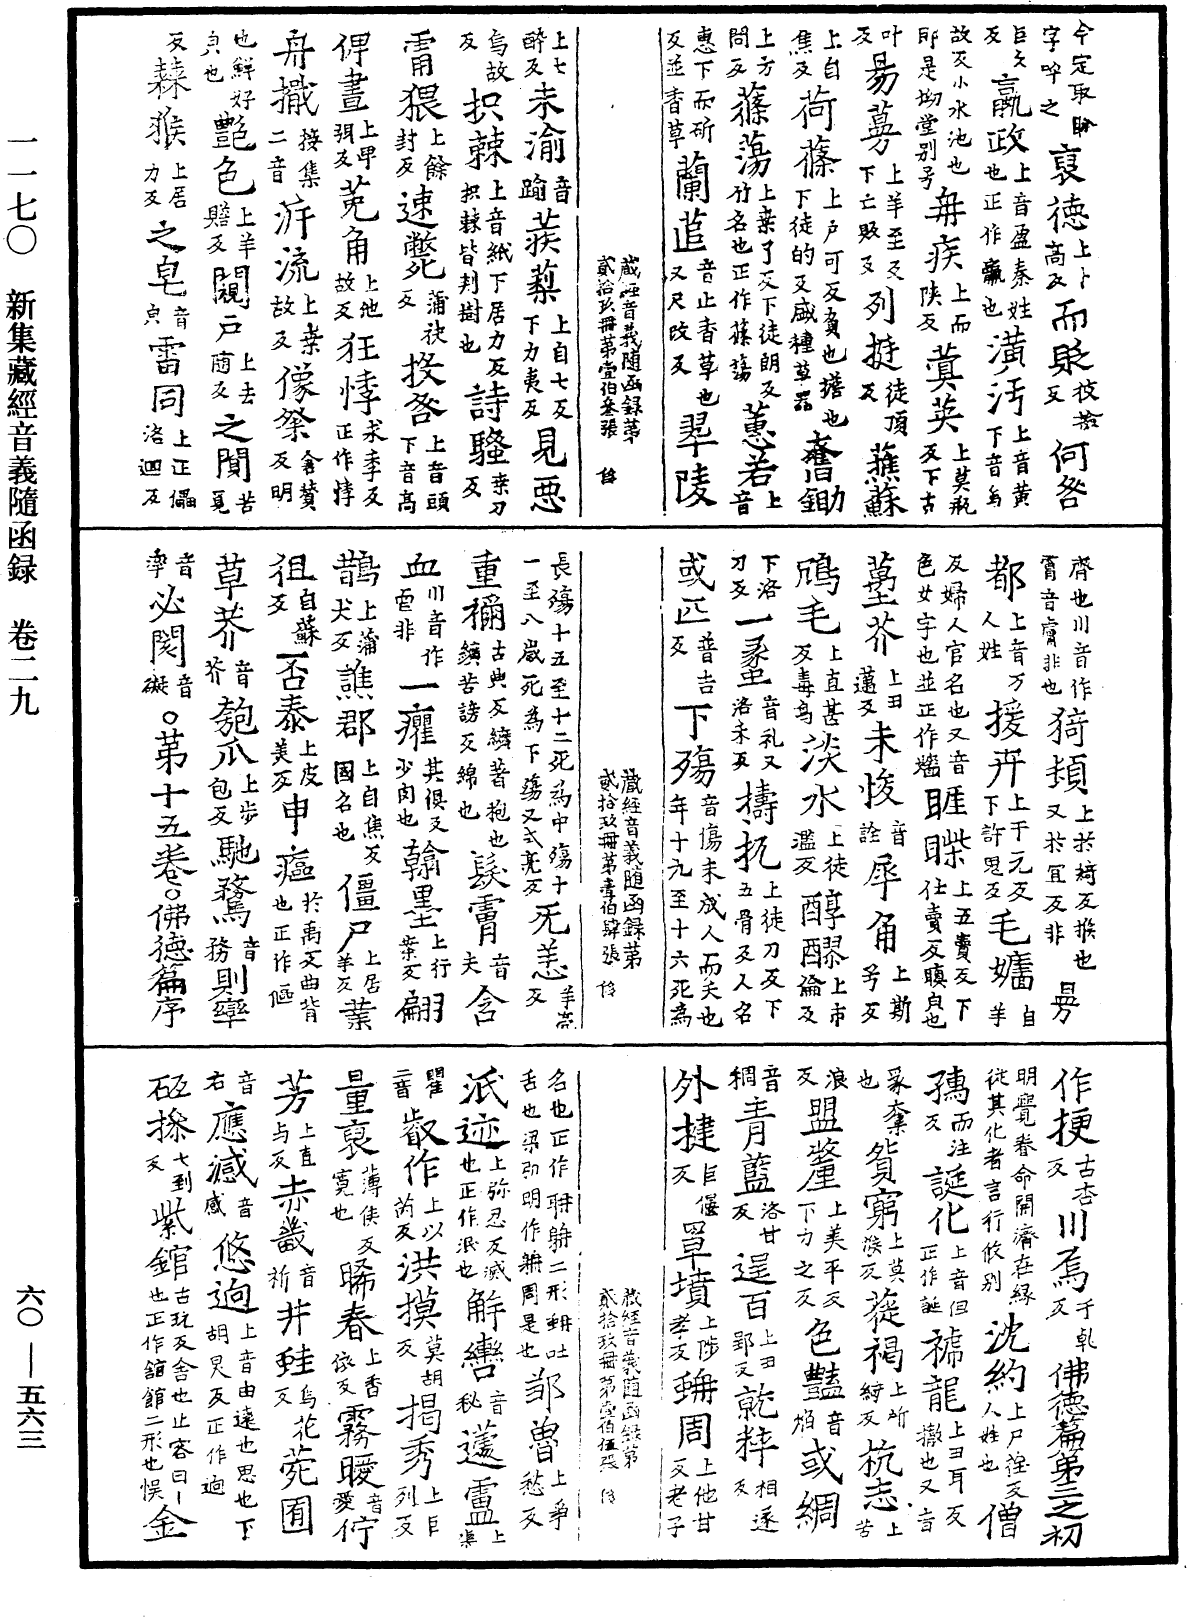 今定取𦙫字呼之裒德上卜高反而貶彼撿反何咎
巨久反嬴政上音盈秦姓也正作嬴也潢汚上音黄下音烏
故反小水池也即是坳堂别号毋疾上而陕反蓂英上莫瓶反下古
叶反昜蒡上羊至反下亡敗反列挺徒頂反蘓蘇
上自焦反荷蓧上户可反負也擔也下徒的反盛種草器奮鋤
上方問反蓧蕩上蘇了反下徒朗反竹名也正作篠簜蕙若上音
惠下而斫反並香草蘭茝音止香草也又尺改反翠陵
藏經音義随函録第貳拾玖冊第壹伯叄張
上七醉反未渝音踰蒺蔾上自七反下力夷反見惡
烏故反抧棘上音紙下居力反抧棘皆刾樹也詩騷桒刀反
霌猥上餘封反速斃蒲袂反投咎上音頭下音髙
俾晝上卑弭反菟角上他故反狂悸求季反正作悸
舟擑接集二音泝流上桒故反傺祭反明
也鮮好皃也艷色上羊贍反闚户上去随反之闃苦覓
反蕀猴上居力反之皂音皃雷同上正儡洛迴反
齊也川音作霄音膏非也猗頓上於綺反猴也又於宜反非昙
都上音万人姓援𢌿上于元反下許鬼反毛嬙自羊
反婦人官名也又音色女字也並正作嬙睚眦上五賣反下仕賣反瞋皃也
薹芥上丑邁反未悛音詮犀角上斯
鴆毛上直甚反毒鳥淡水上徒濫反醇醪上市倫反
下洛刀反一蠡音礼又洛禾反擣扤上徒刀反下五骨反人名
或匹普吉反下殤音傷未成人而夭也年十九至十六死為
藏經音義随函録第貳拾玖冊第壹伯肆張
長殤十五至十二死為中殤十一至八歳死為下殤又式亮反无恙羊亮反
重襺古典反纊著抱也纊苦謗反綿也髮霄音夫含
血川音作雹非一癯其俱反少肉也翰墨上行桒反翩
鵲上蒲犬反譙郡上自焦反國名也僵尸上居羊反葉
徂自蘇反否泰上皮美反申瘟於禹反曲背也正作傴
草芥音芥匏瓜上步包反馳騖音務則㪍
音孛必閡音礙。第十五卷。佛德篇序
作挭古杏反川焉于乹反佛德篇第三之初
明覺眷命開濟在縁從其化者言行攸别沈約上尸荏反人姓也僧
孺而注反誕化上音但正作誕褫龍上丑耳反撤也又音
豸奪也貧窮上莫㨋反蓰褐上所綺反杭志上苦
浪反盟鼇上美平反下力之反色豔音焰或綢
音稠青藍洛甘反逞百上丑郢反乾粹相遂反
外揵巨偃反覃墳上陟孝反蛃周上他甘反老子
藏經音義随函録第貳拾玖冊第壹伯伍張
名也正作聃𦕅二形蛃吐舌也梁弘明作𦕅周是也邹魯上爭愁反
泯迹上弥忍反滅也正作泯也解轡音秘蘧廬上渠
瞿二音叡作上以芮反洪摸莫胡反揭秀上巨列反
量裒薄侯反寛也晞春上香依反霧曖音愛佇
芳上直与反赤畿音祈井蛙烏花反菀囿
音右應減音感悠逈上音由遠也思也下胡炅反正作逈
砡操七到反紫錧古玩反舎也止客曰一也正作舘館二形也悮金
新集藏經音義隨函録　卷二九
一一七〇
六〇—五六三